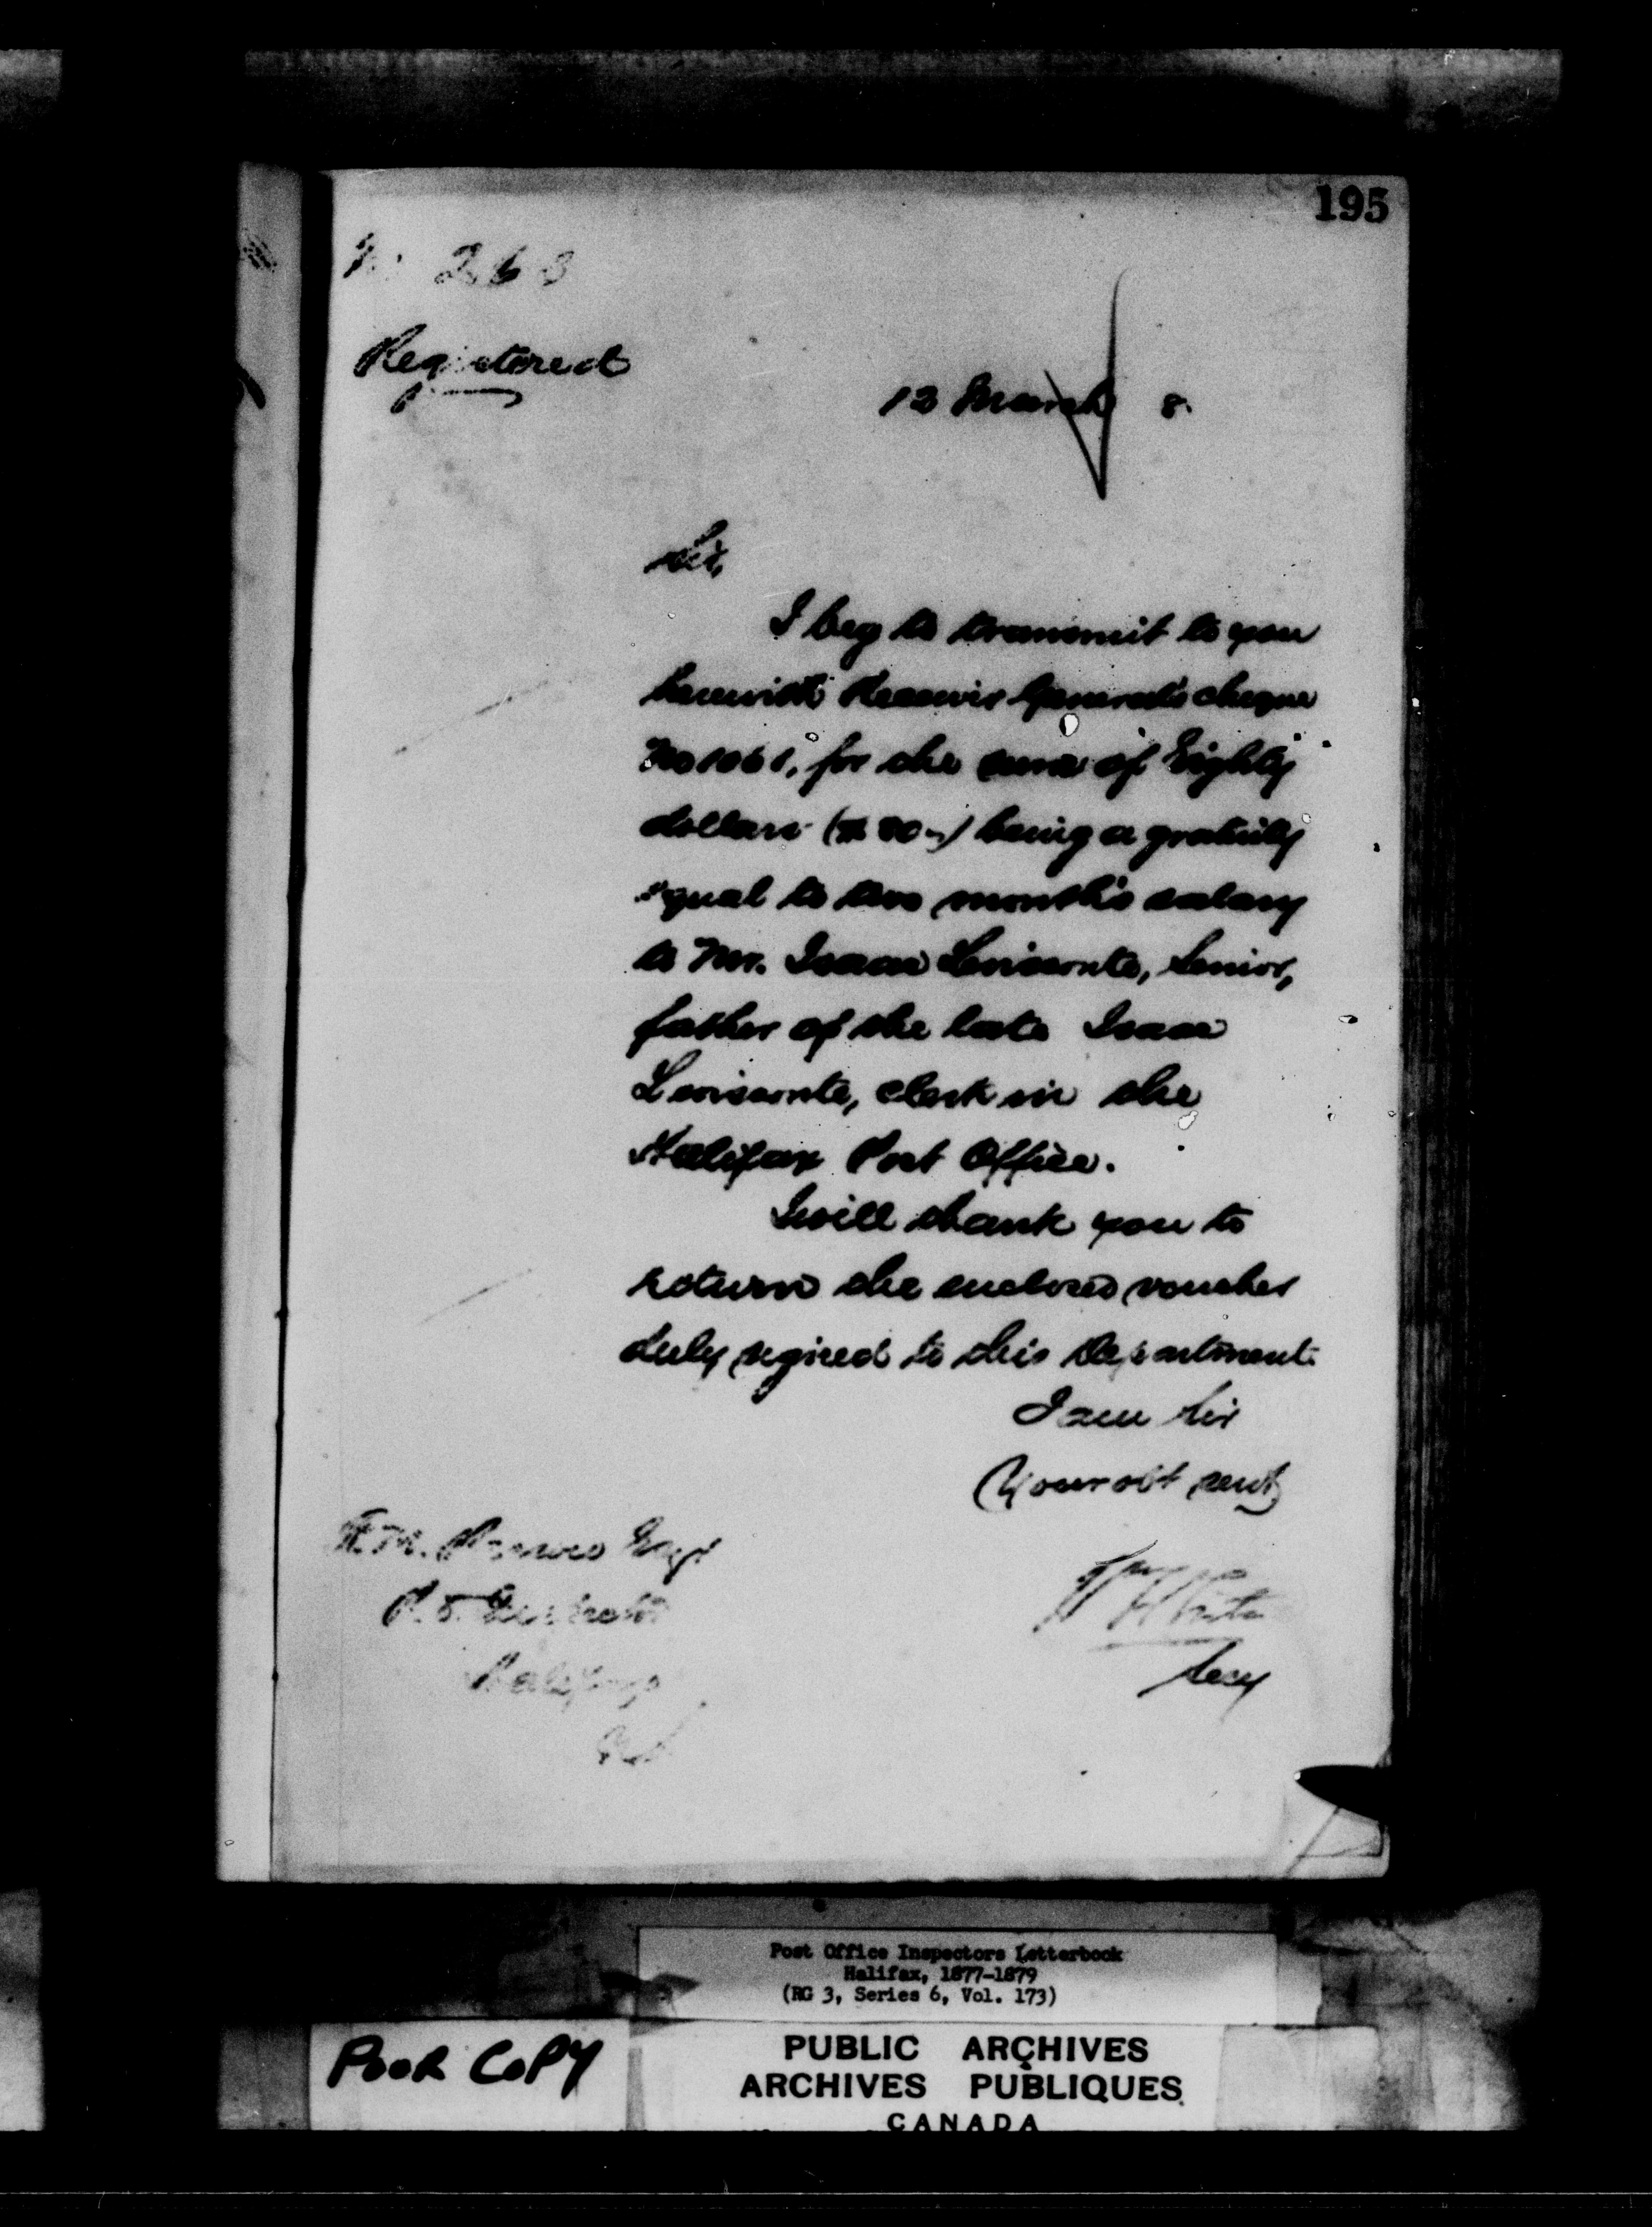 195
No 263
Registered
12 March 8
Sir,
I beg to transmit to you
herewith Receiver General's cheque
No 1061, for the sum of Eighty
dollars ($80-) being a gratuity
equal to two month's salary
to Mr. Isaac Leviseonte, Senior,
father of the late Isaac
Leviseonte, clerk in the
Halifax Post Office.
I will thank you to
return the enclosed voucher
duly signed to this Department.
I am Sir
Your obt servt
Secy
P.O. Inspector
Halifax
Post Office Inspectors Letterbook
Halifax, 1877-1879
(RG 3, Series 6, Vol. 173)
POOR COPY
PUBLIC ARCHIVES
ARCHIVES PUBLIQUES
CANADA